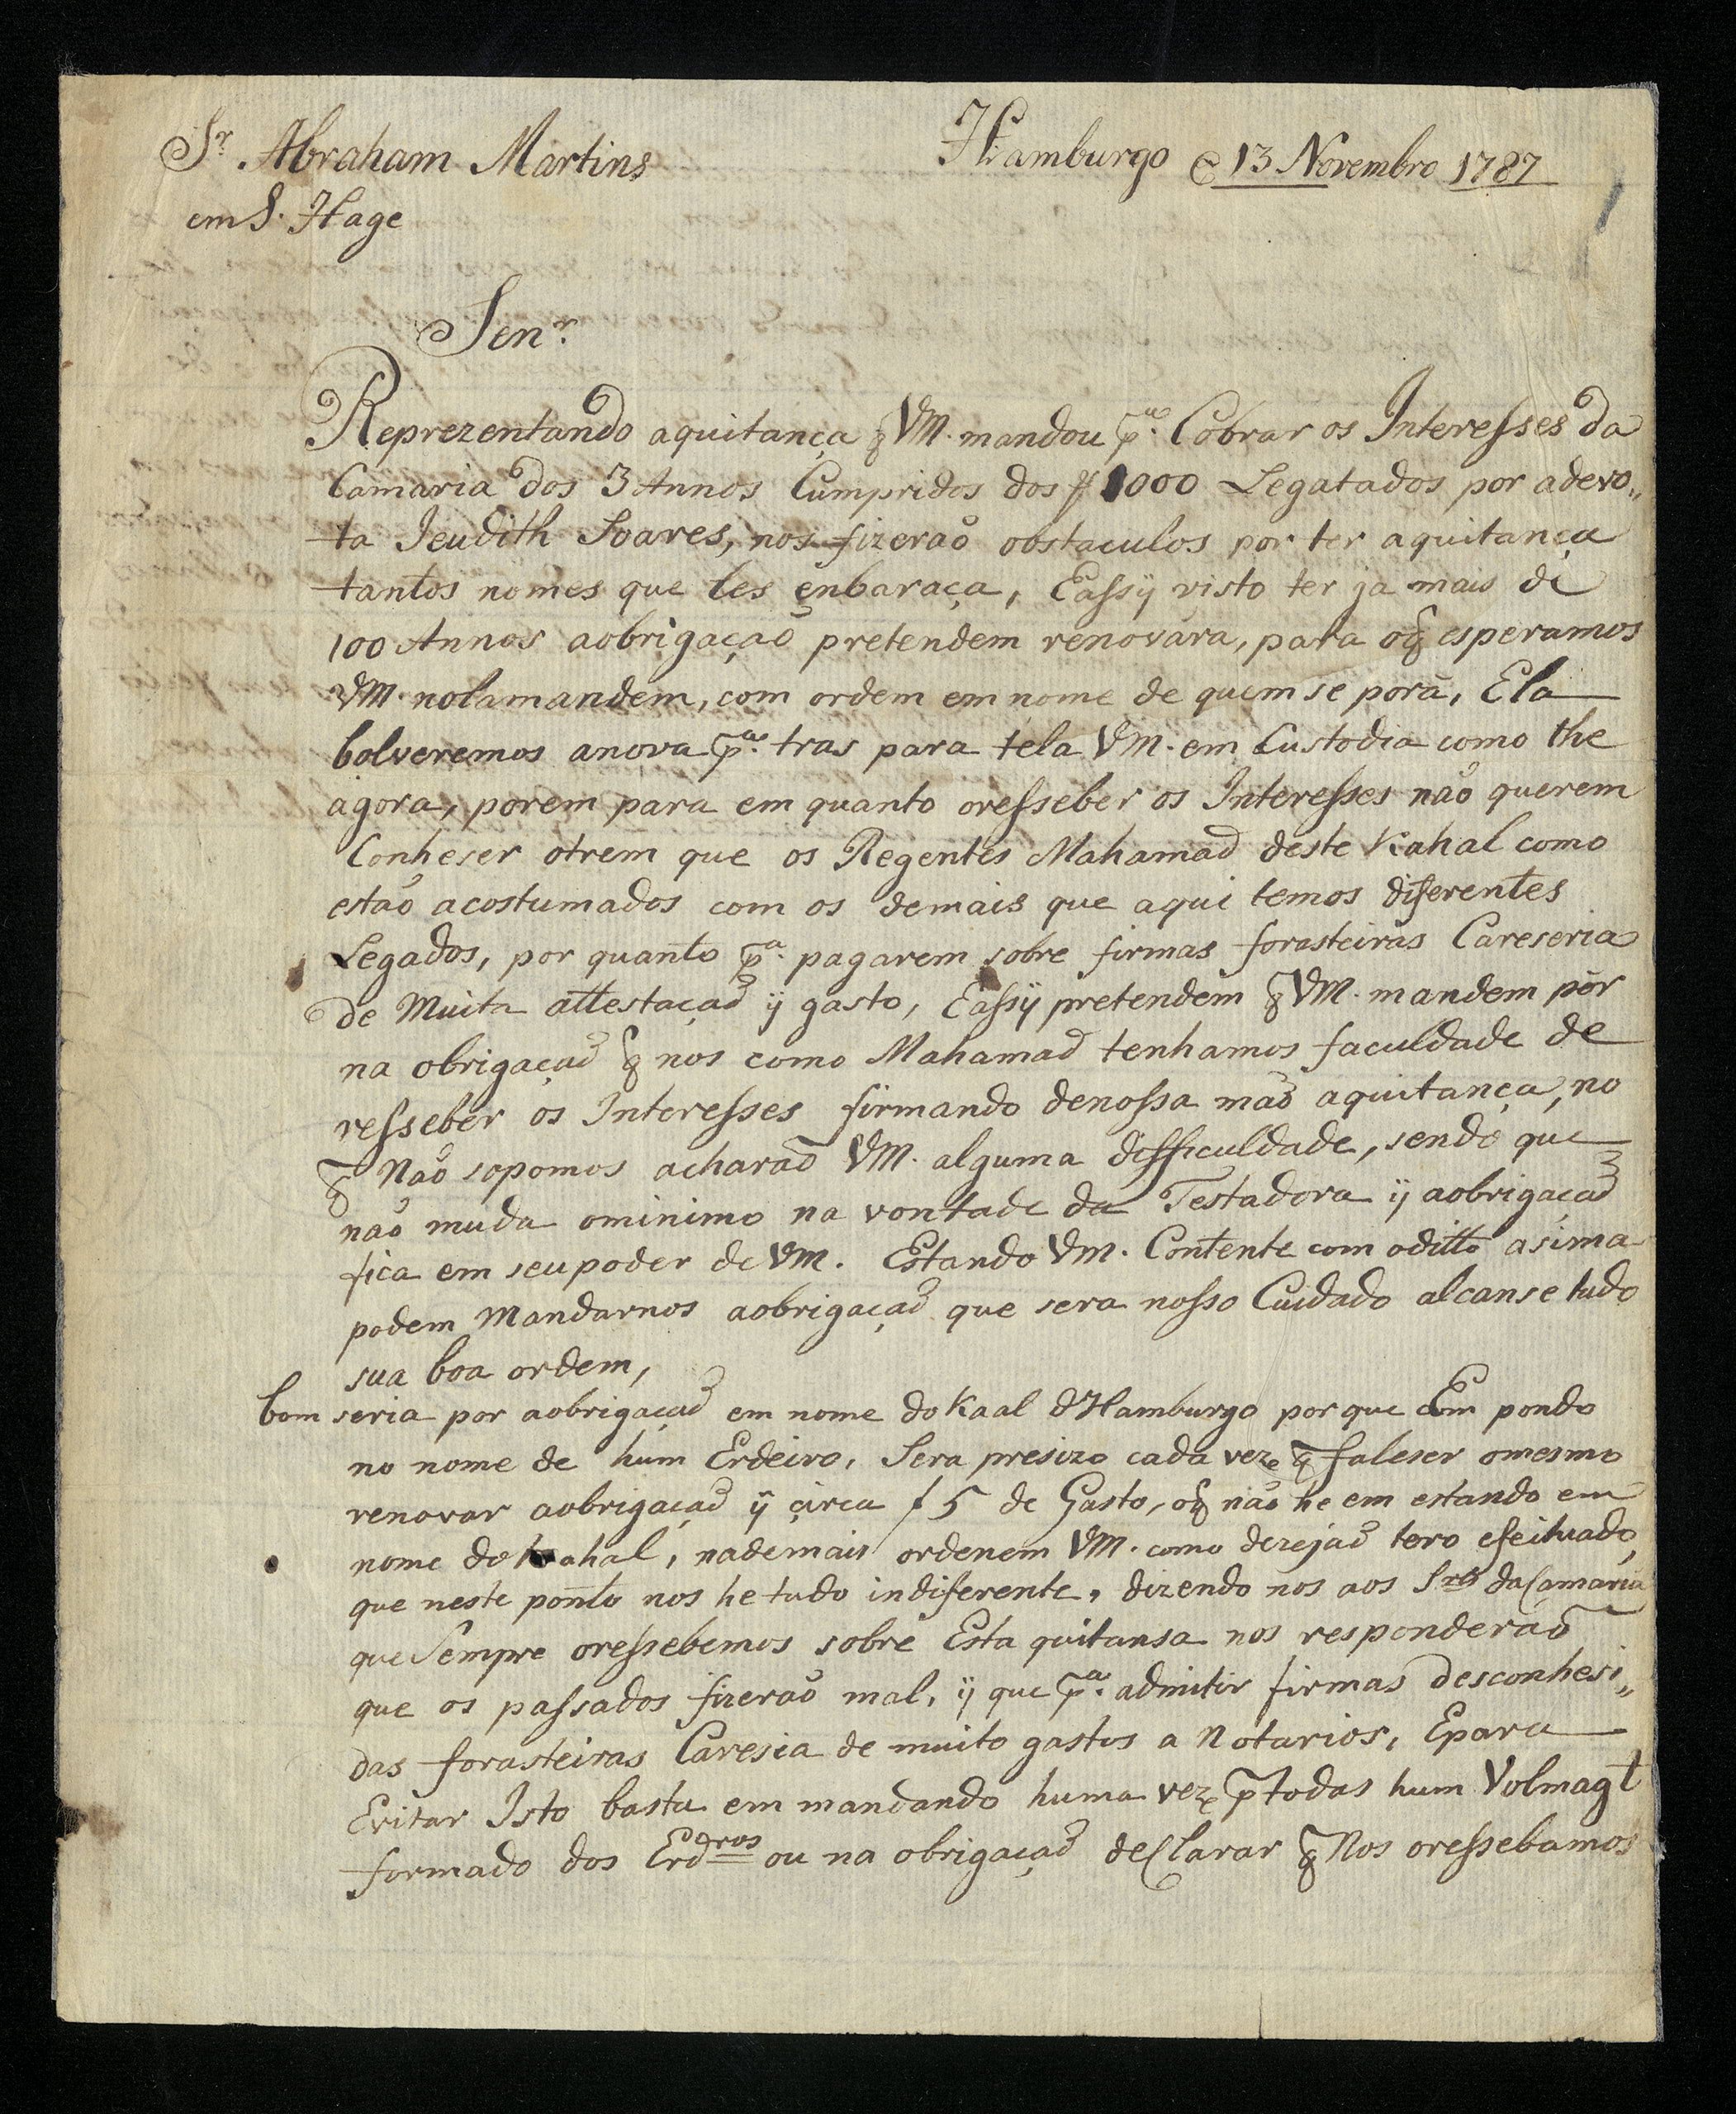 Sr. Abraham Martins
Hamburgo @ 13 Novembro 1787
em S. Hage
Senr.
Reprezentando aquitança q̃ VM. mandou pa. Cobrar os Interesses da
Camaria dos 3 Annos Cumpridos dos ƒ 1000 Legatados por adevo„
ta Jeudith Soares, nos fizeraõ obstaculos por ter aquitança
tantos nomes que les enbaraça, Eassÿ visto ter ja mais de
100 Annos aobrigaçaõ pretendem renovara, para oq̃ esperamos
VM. nolamandem, com ordem em nome de quem se porà, Ela
bolveremos anova pa. tras para tela VM. em Custodia como the
agora, porem para em quanto oresseber os Interesses naõ querem
Conheser otrem que os Regentes Mahamad deste Kahal como
estaõ acostumados com os demais que aqui temos diferentes
Legados, por quanto pa. pagarem sobre firmas forasteiras Careseria
de Muita attestaçaõ ÿ gasto, Eassÿ pretendem q̃ VM. mandem pòr
na obrigaçaõ q̃ nos como Mahamad tenhamos faculdade de
resseber os Interesses firmando denossa maõ aquitança, no
q̃ Naõ sopomos acharaõ VM. alguma difficuldade, sendo que
naõ muda ominimo na vontade da Testadora ÿ aobrigaçaõ
fica em seu poder de VM. Estando VM. Contente com oditto asima
podem Mandarnos aobrigaçaõ que sera nosso Cuidado alcanse tudo
sua boa ordem,
bom seria por aobrigaçaõ em nome do Kaal d'Hamburgo por que em pondo
no nome de hum Erdeiro, Sera presizo cada veze q̃ faleser omesmo
renovar aobrigaçaõ ÿ çirca ƒ 5 de Gasto, oq̃ naõ he em estando em
nome do Kahal, nademais ordenem VM. como dezejaõ tero efeituado,
que neste ponto nos he tudo indiferente, dizendo nos aos Sres da Camaria
que Sempre oressebemos sobre Esta quitansa nos responderaõ
que os passados fizeraõ mal, ÿ que pa. admitir firmas desconhesi„
das forasteiras Caresia de muito gastos a Notarios, Epara
Evitar Isto basta em mandando huma veze p̃ todas hum Volmagt
formado dos Erdros ou na obrigaçaõ deClarar q̃ Nos oressebamos